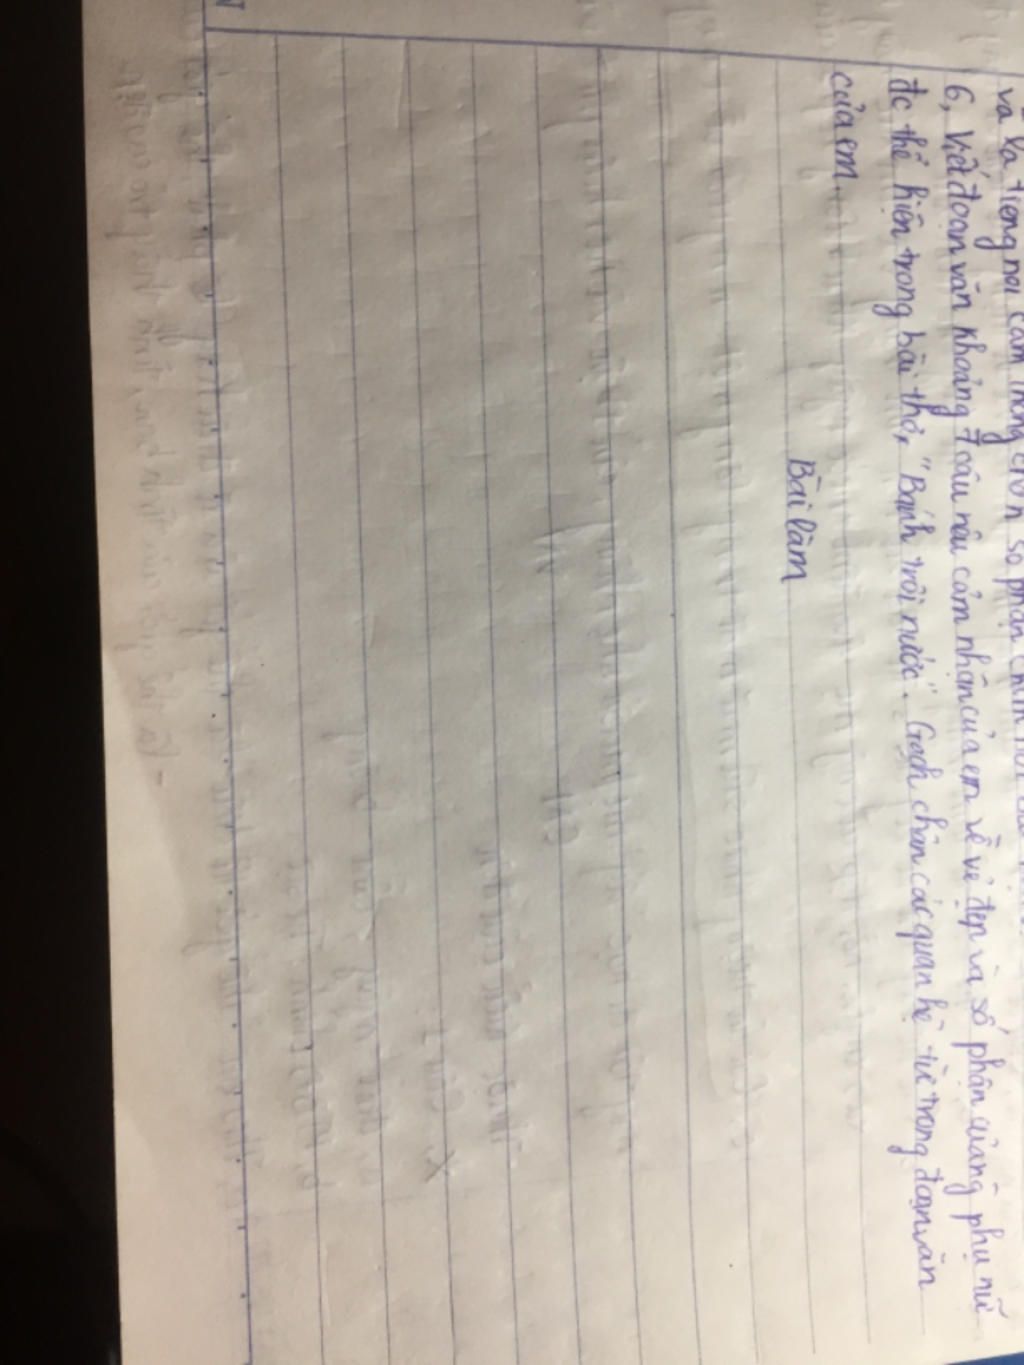 và là tiếng nói cảm thông cho n số phận chìm nổi
6, Viết đoạn văn khoảng 7 câu nêu cảm nhận của em về vẻ đẹp và số phận của ng phụ nữ
đc thể hiện trong bài thơ, "Bánh trôi nước". Gạch chân các quan hệ từ trong đoạn văn
của em.
Bài làm